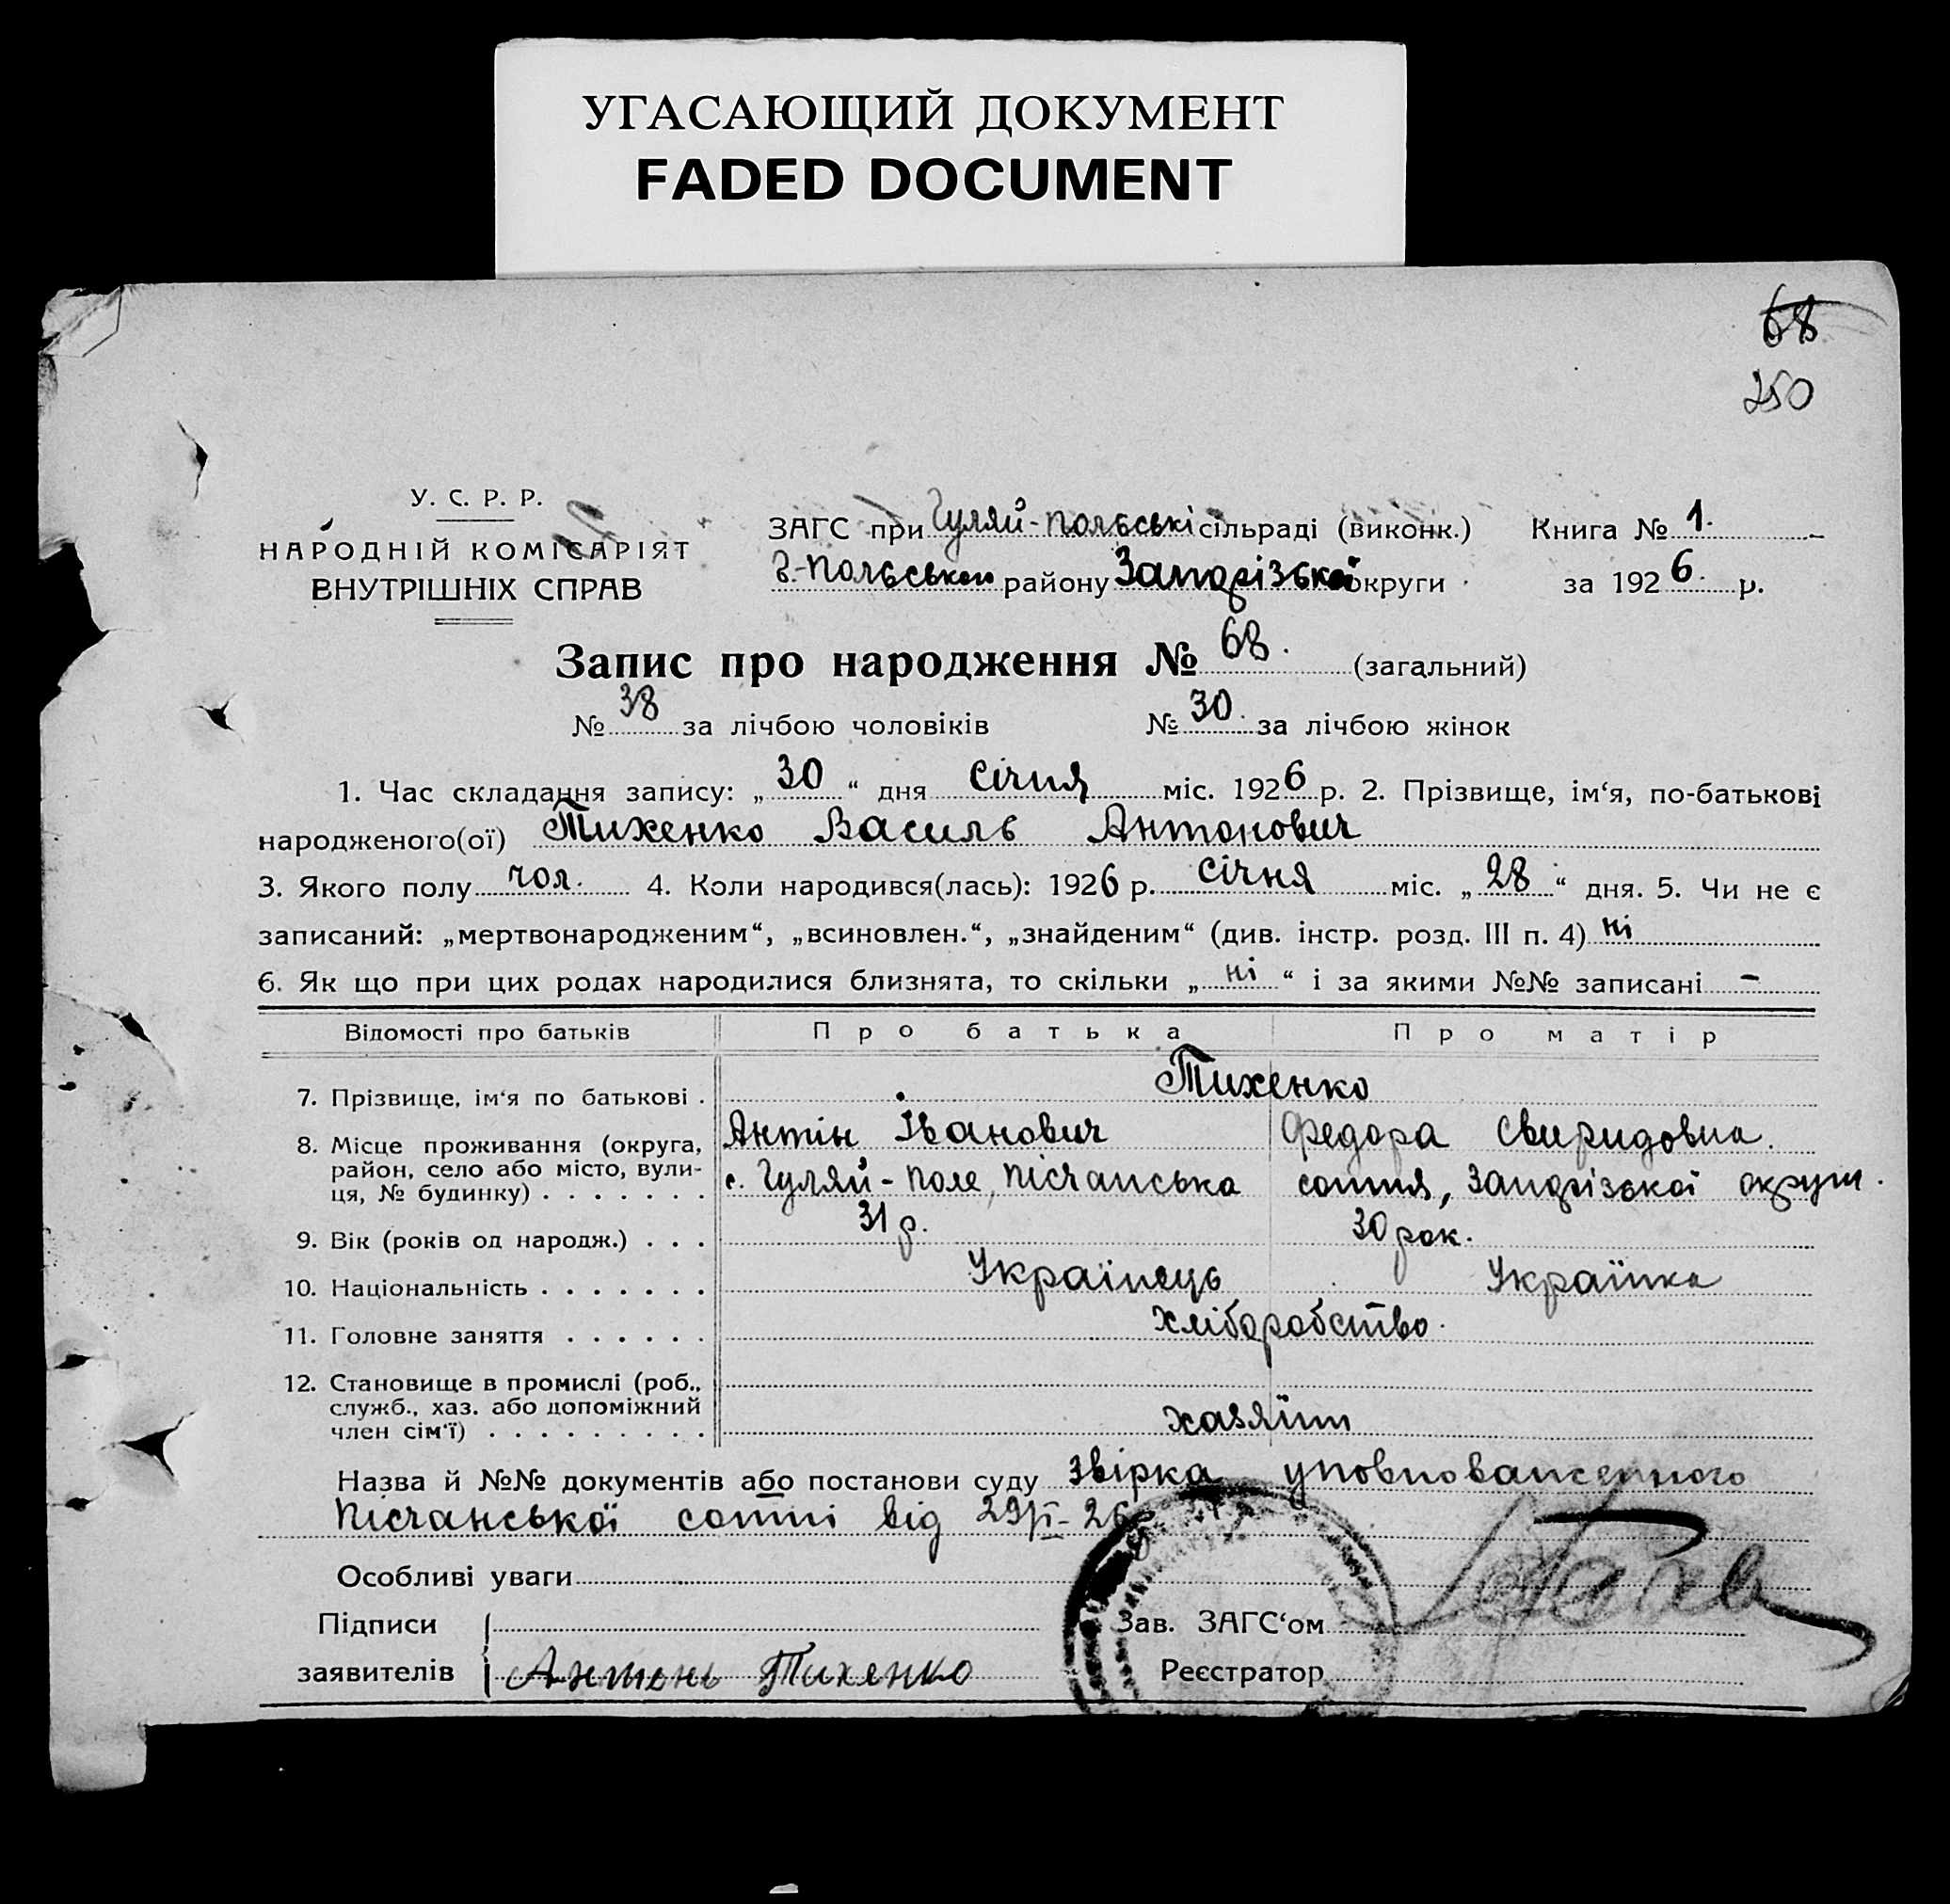 УГАСАЮЩИЙ ДОКУМЕНТ
FADED DOCUMENT
68
250
У. С. Р. Р.
НАРОДНІЙ КОМІСАРІЯТ
ВНУТРІШНІХ СПРАВ
ЗАГС при Гуляй-Польські сільраді (виконк.) Книга № 1.
Г.-Польського району Запорізької округи за 1926. р.
Запис про народження № 68. (загальний)
№ 38 за лічбою чоловіків № 30. за лічбою жінок
1. Час складання запису: „30“ дня Січня міс. 1926 р. 2. Прізвище, ім‘я, по-батькові
народженого(ої) Тихенко Василь Антонович
3. Якого полу чол. 4. Коли народився(лась): 1926 р. Січня міс. „28“ дня. 5. Чи не є
записаний: „мертвонародженим“, „всиновлен.“, „знайденим“ (див. інстр. розд. III п. 4) ні
6. Як що при цих родах народилися близнята, то скільки „ні“ і за якими №№ записані –
Відомості про батьків Про батька Про матір
7. Прізвище, ім‘я по батькові . Тихенко
Антін Іванович Федора Свиридовна.
8. Місце проживання (округа,
район, село або місто, вули-
ця, № будинку) . . . . . . . с. Гуляй-Поле, Пісчанська сотня, Запорізької округи.
9. Вік (років од народж.) . . . 31 р. 30 рок.
10. Національність . . . . . . . Українець Українка
11. Головне заняття . . . . . . хліборобство.
12. Становище в промислі (роб.,
служб., хаз. або допоміжний
член сім‘ї) . . . . . . . . . хазяїни
Назва й №№ документів або постанови суду Звірка уповноваженного
Пісчанської сотні від 29/I-26
Особливі уваги
Підписи Зав. ЗАГС‘ом
заявителів Антонь Тихенко Реєстратор